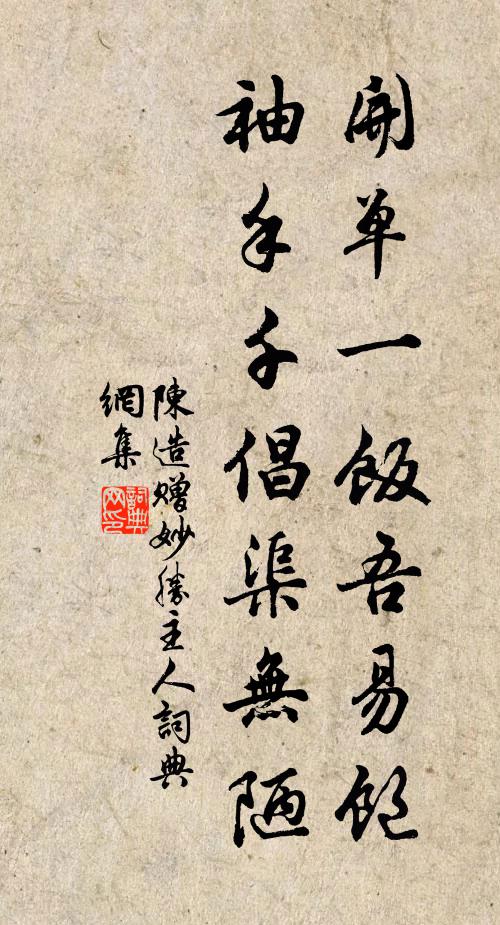 開單一飯吾易飽
袖手千倡渠無陋
陳造贈妙勝主人詞典
網集
詞典
网印